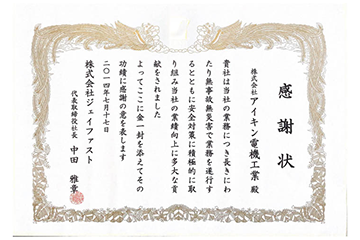 感謝状
株式会社 アイキン電機工業 殿
貴社は当社の業務につき長きにわ
たり無事故無災害で業務を遂行す
るとともに安全対策に積極的に取
り組み当社の業績向上に多大な貢
献をされました
よってここに金一封を添えてその
功績に感謝の意を表します
二〇一四年七月十七日
株式会社ジェイファスト
代表取締役社長 中田 雅章